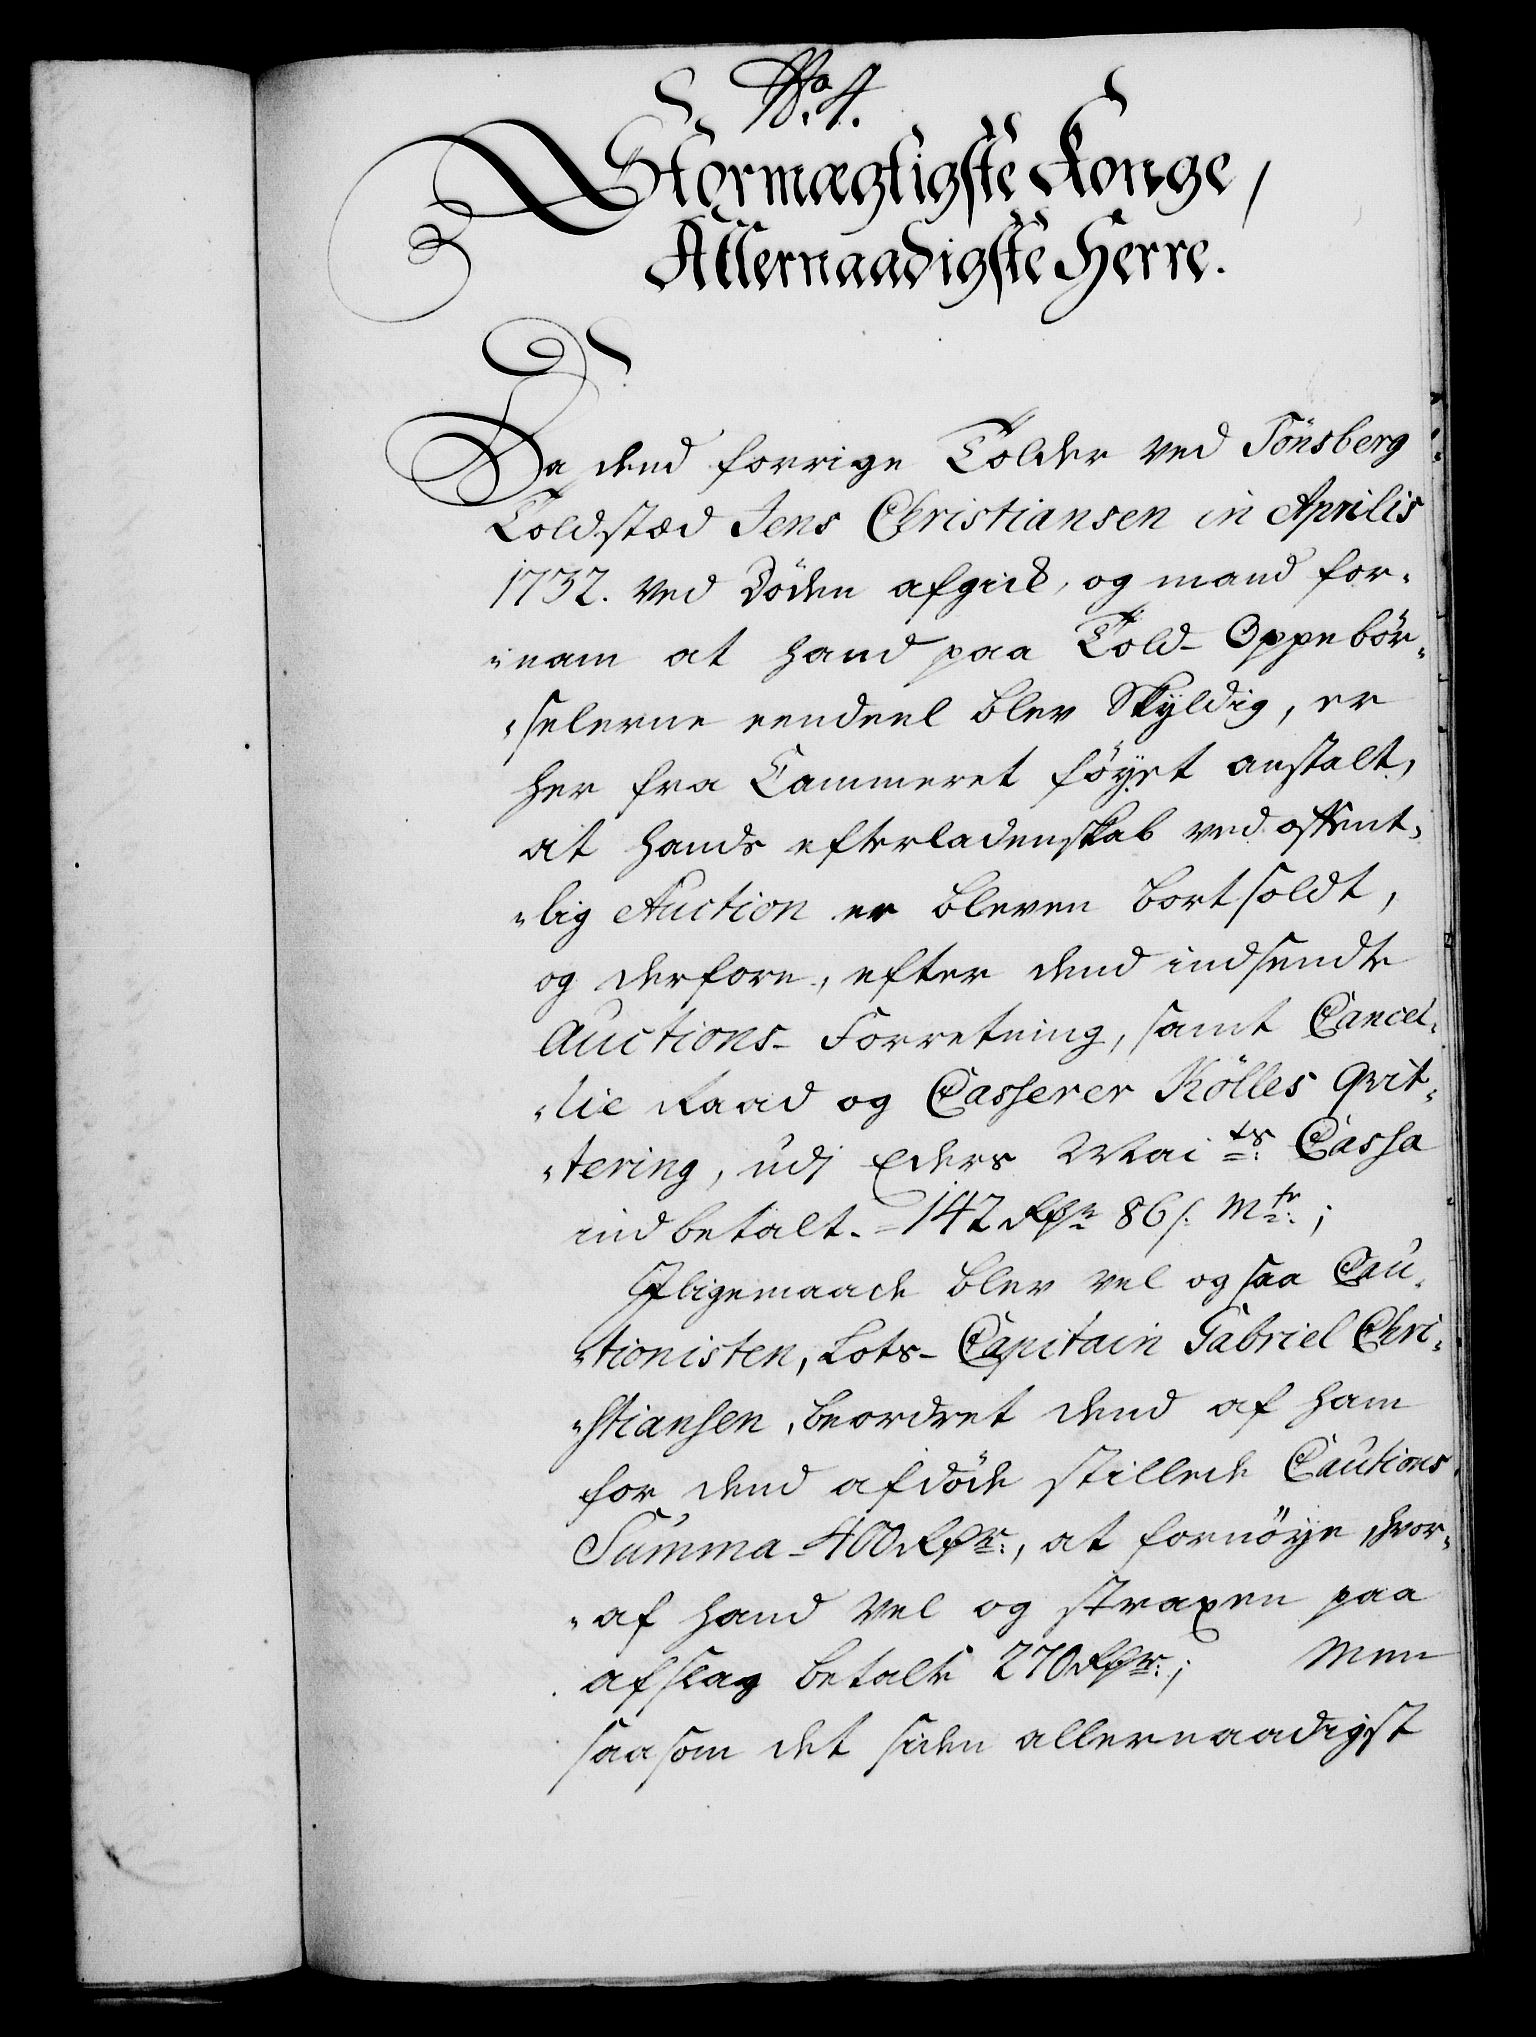 No. 4.
Stormægtigste Konge,
Allernaadigste Herre.
Da dend forrige Tolder ved Tönsberg
Toldstæd Jens Christiansen in Aprilis
1732. ved Döden afgick, og mand for-
nam at hand paa Told-Oppebör-
selerne eendeel blev Skyldig, er
her fra Cammeret föyet anstalt,
at hands efterladenskab ved offent-
lig Auction er bleven bortsoldt,
og derfore, efter dend indsendte
Auctions-Forretning, samt Cancel-
lie Raad og Casserer Kölles Qvit-
tering, udj Eders Maits: Cassa
indbetalt. 142 Rdr 86 s: Mtr:;
Jligemaade blev vel og saa Cau-
tionisten, Lots-Capitain Gabriel Chri-
stiansen, beordret dend af ham
for dend afdöde stillede Cautions
Summa 400 Rdr:, at fornöye, hvor-
af hand vel og straxen paa
afslag betalte 270 Rdr:; Men
saasom det siden allernaadigst